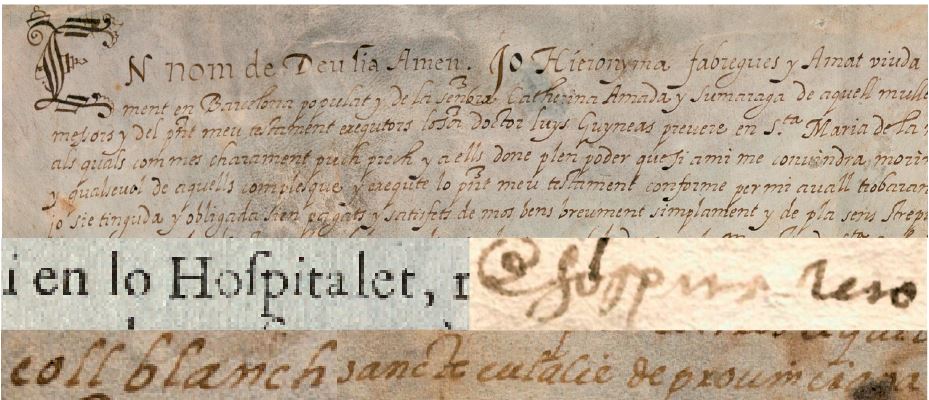 EN nom de Deu sia Amen. Jo Hieronyma fabregues y Amat viuda
ment en Barcelona populat y de la señora Catherina Amada y Sumaraga de aquell mulle
messors y del pñt meu testament exequtors lo Sr. doctor luys Guyneas prevere en S.ta Maria de la
als quals com mes charament puch prech y a ells done plen poder que si a mi me convindra morir
y qualsevol de aquells complesque y exequte lo pñt meu testament conforme per mi avall trobaran
jo sie tinguda y obligada sien pagats y satisfets de mos bens breument simplament y de pla sens strep
i en lo Hoſpitalet,
coll blanch sancte eulalie de prouinciana